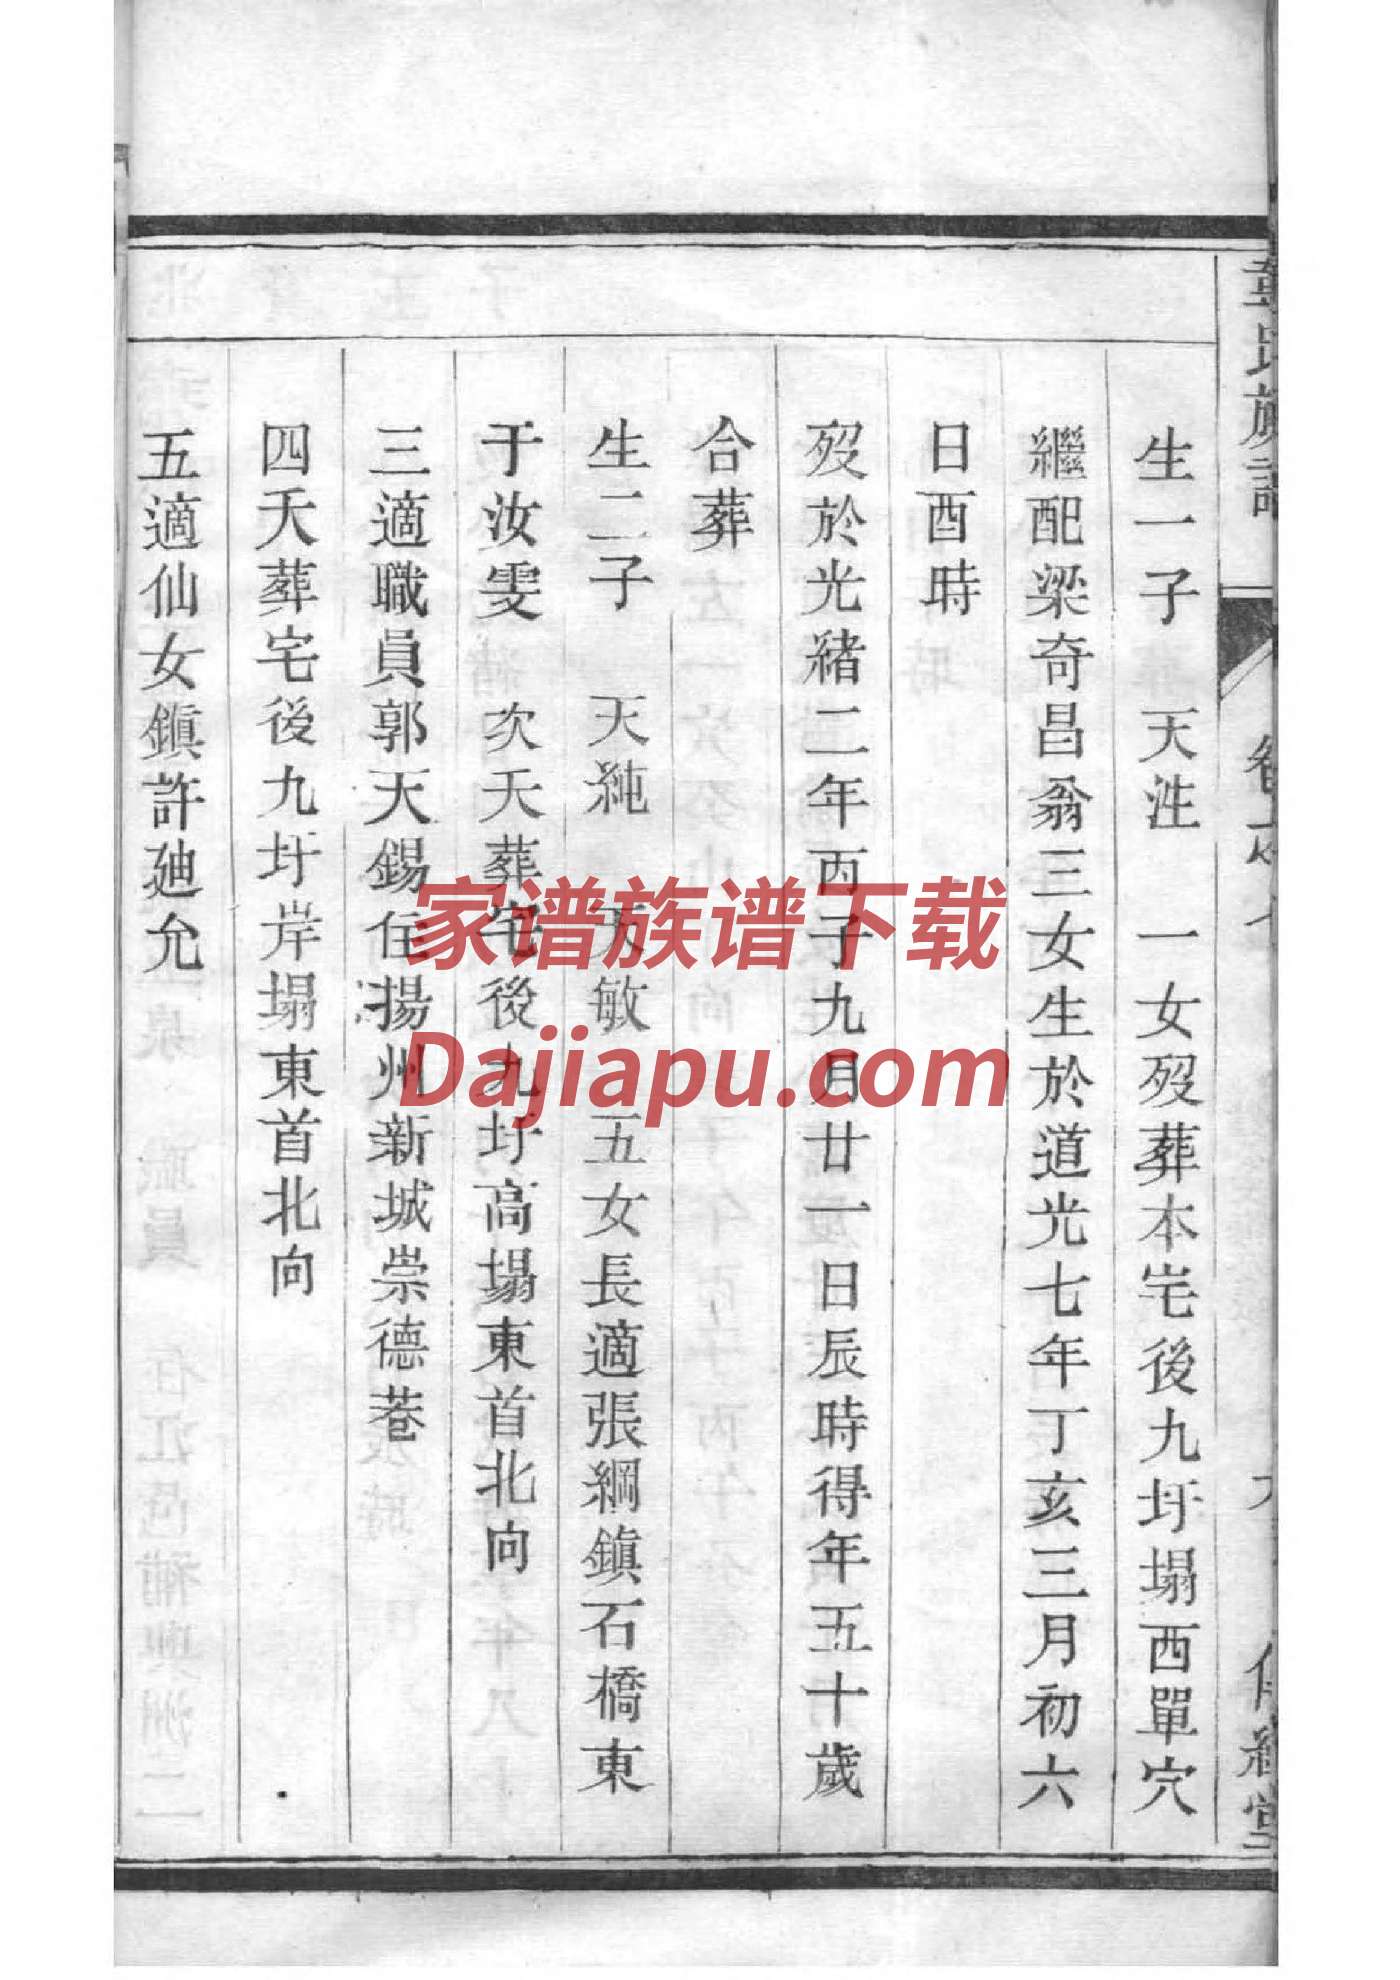 生一子 天泩 一女歿葬本宅後九圩塌西單穴
繼配梁奇昌翁三女生於道光七年丁亥三月初六
日酉時
歿於光緒二年丙子九月廿一日辰時得年五十歲
合葬
生二子 天純 天敏 五女長適張綱鎮石橋東
于汝雯 次夭葬宅後九圩高塌東首北向
三適職員郭天錫住揚州新城崇德巷
四夭葬宅後九圩岸塌東首北向
五適仙女鎮許廸允
家谱族谱下载
Dajiapu.com